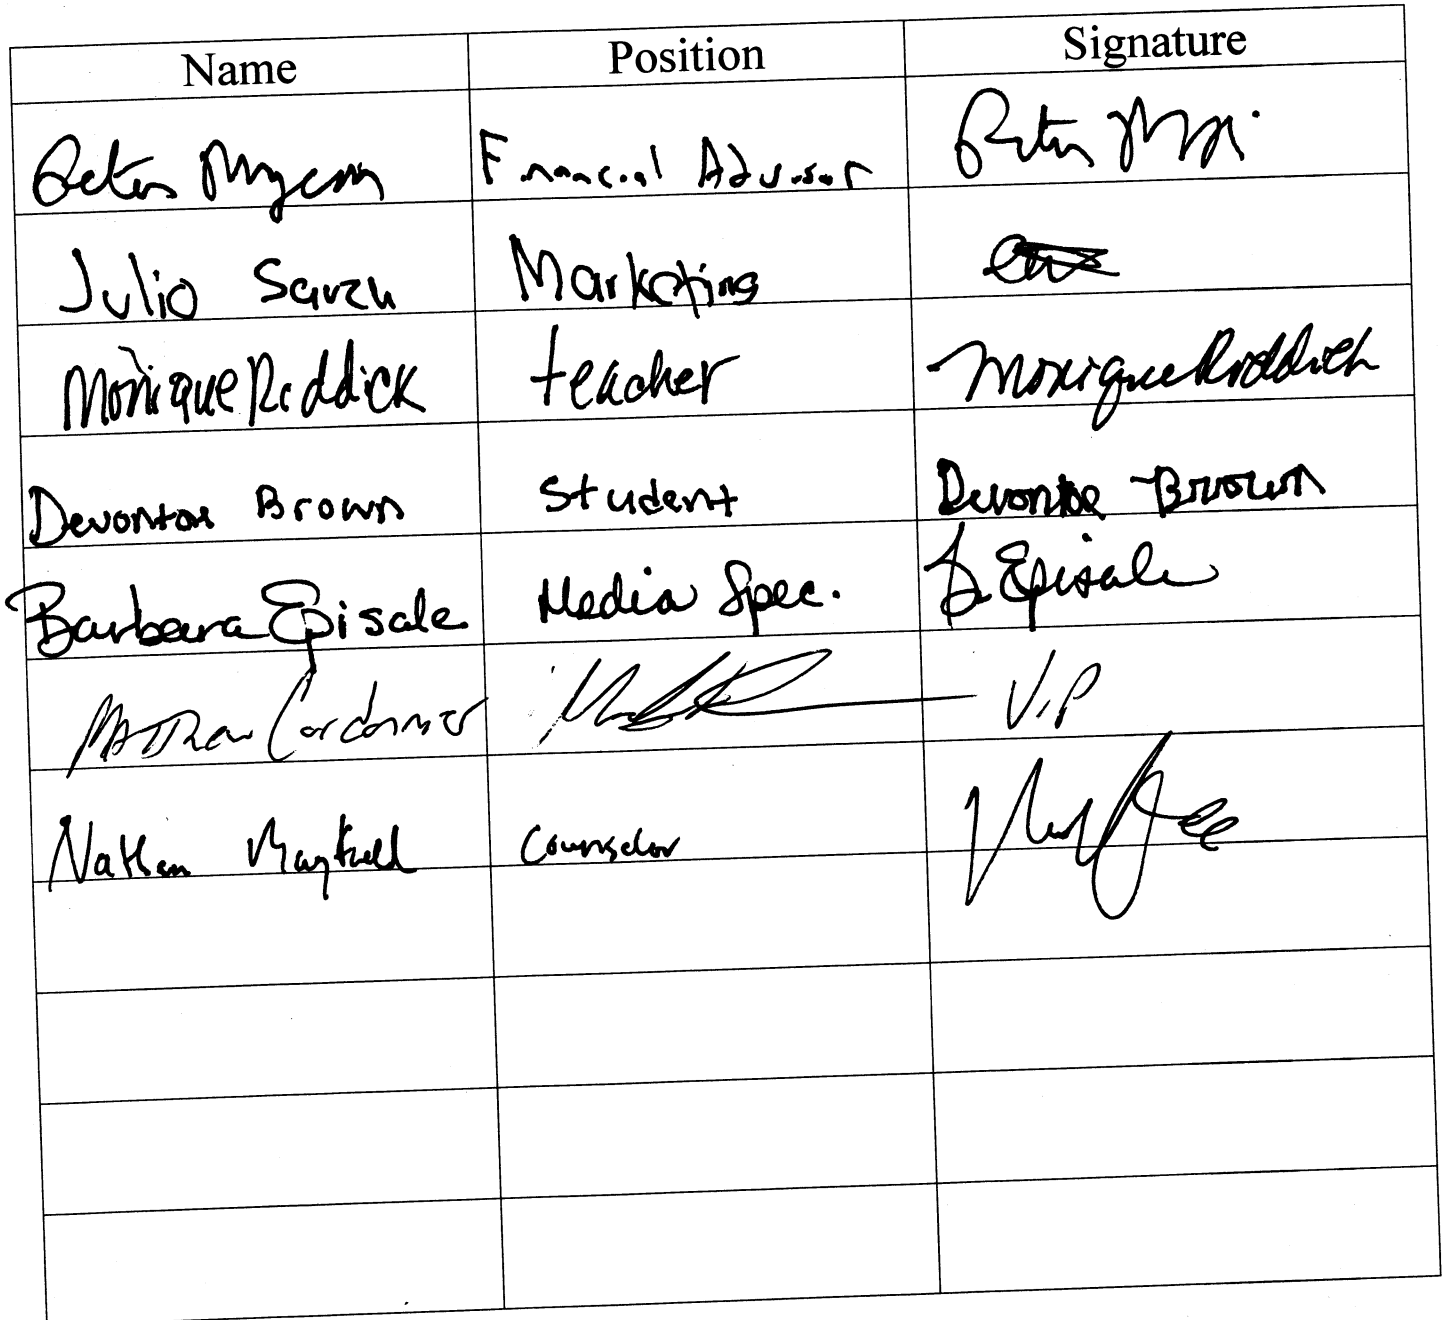 Name Position Signature
Peter Financial Advisor Peter
Julio Marketing
Monique Reddick teacher Monique Reddick
Devontae Brown Student Devontae Brown
Barbara Episale Media Spec. B. Episale
Matthew V.P
Nathan Counselor